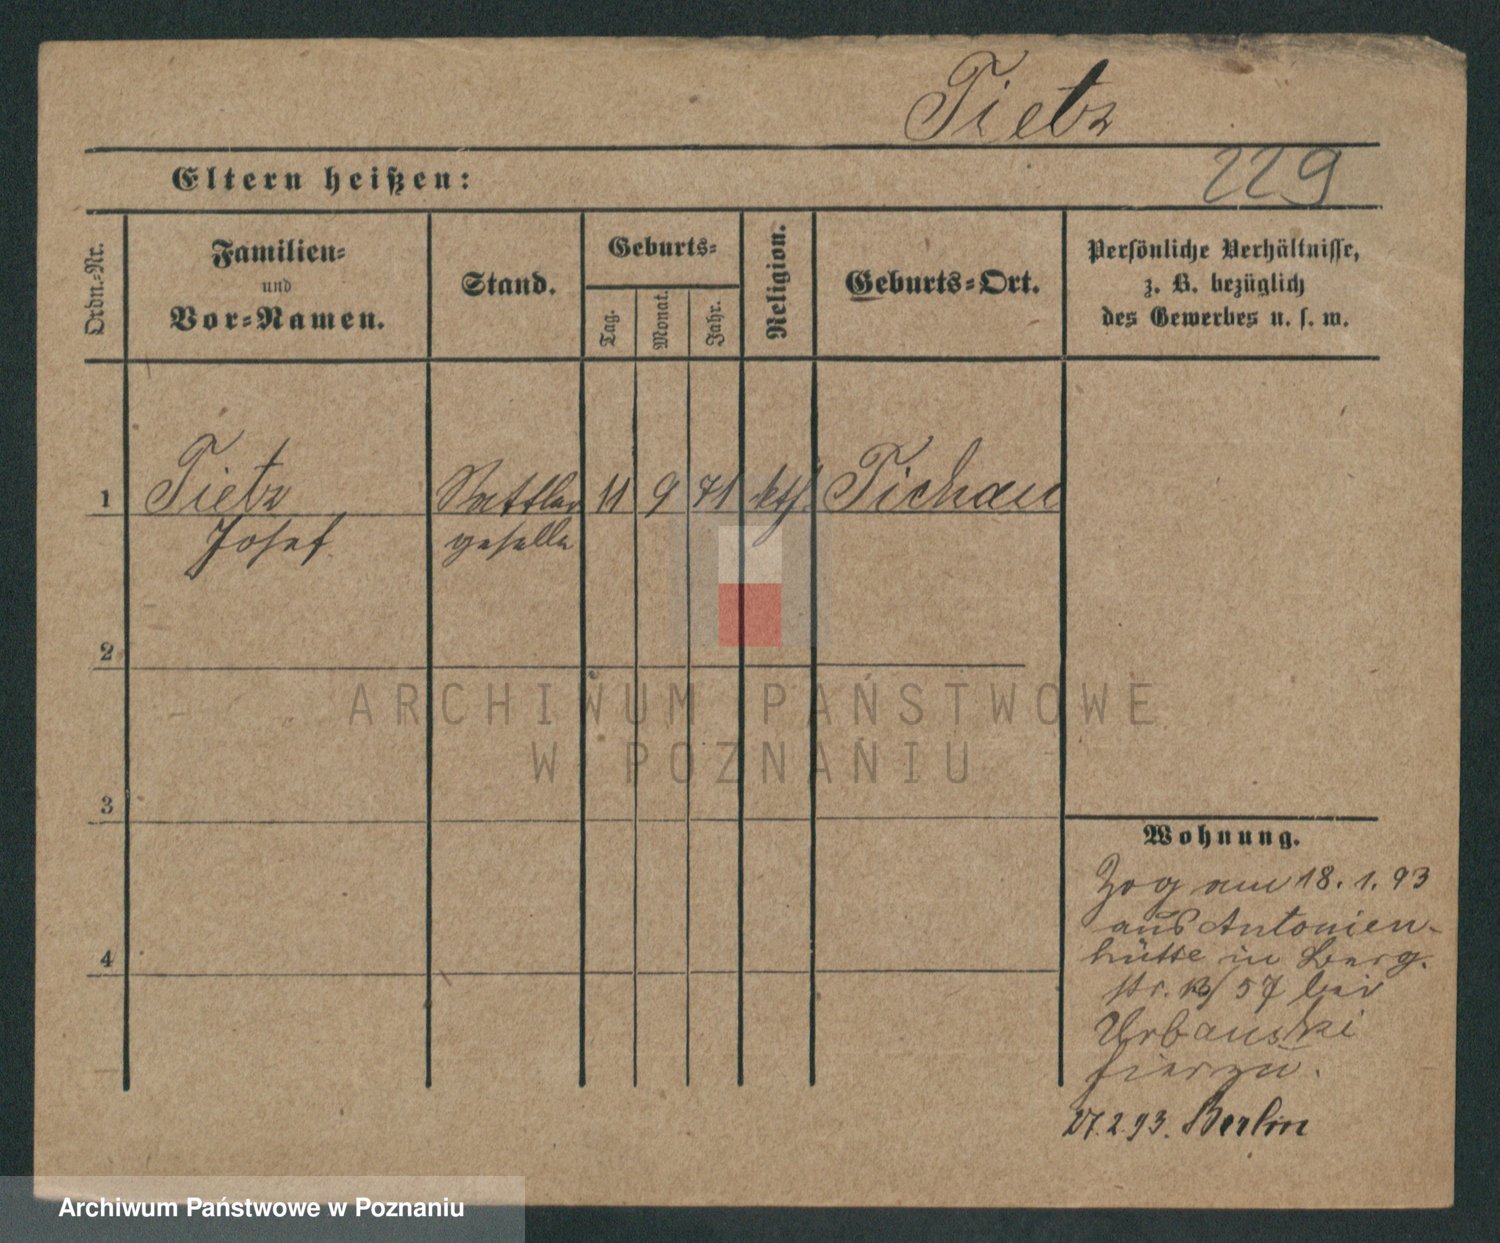 Tietz
229
Eltern heißen:
Ordn.-Nr.
Familien-
und
Vor-Namen.
Stand.
Geburts-
Tag.
Monat.
Jahr.
Religion.
Geburts-Ort.
Persönliche Verhältnisse,
z. B. bezüglich
des Gewerbes u. s. w.
1 Tietz Sattler 11 9 71 kth. Tichau
Josef geselle
2
3
4
Wohnung.
Zog am 18. 1. 93
aus Antonien-
hütte in Berg-
str. 57 bei
Urbanski
hierzu.
27.2.93. Berlin
ARCHIWUM PAŃSTWOWE
W POZNANIU
Archiwum Państwowe w Poznaniu